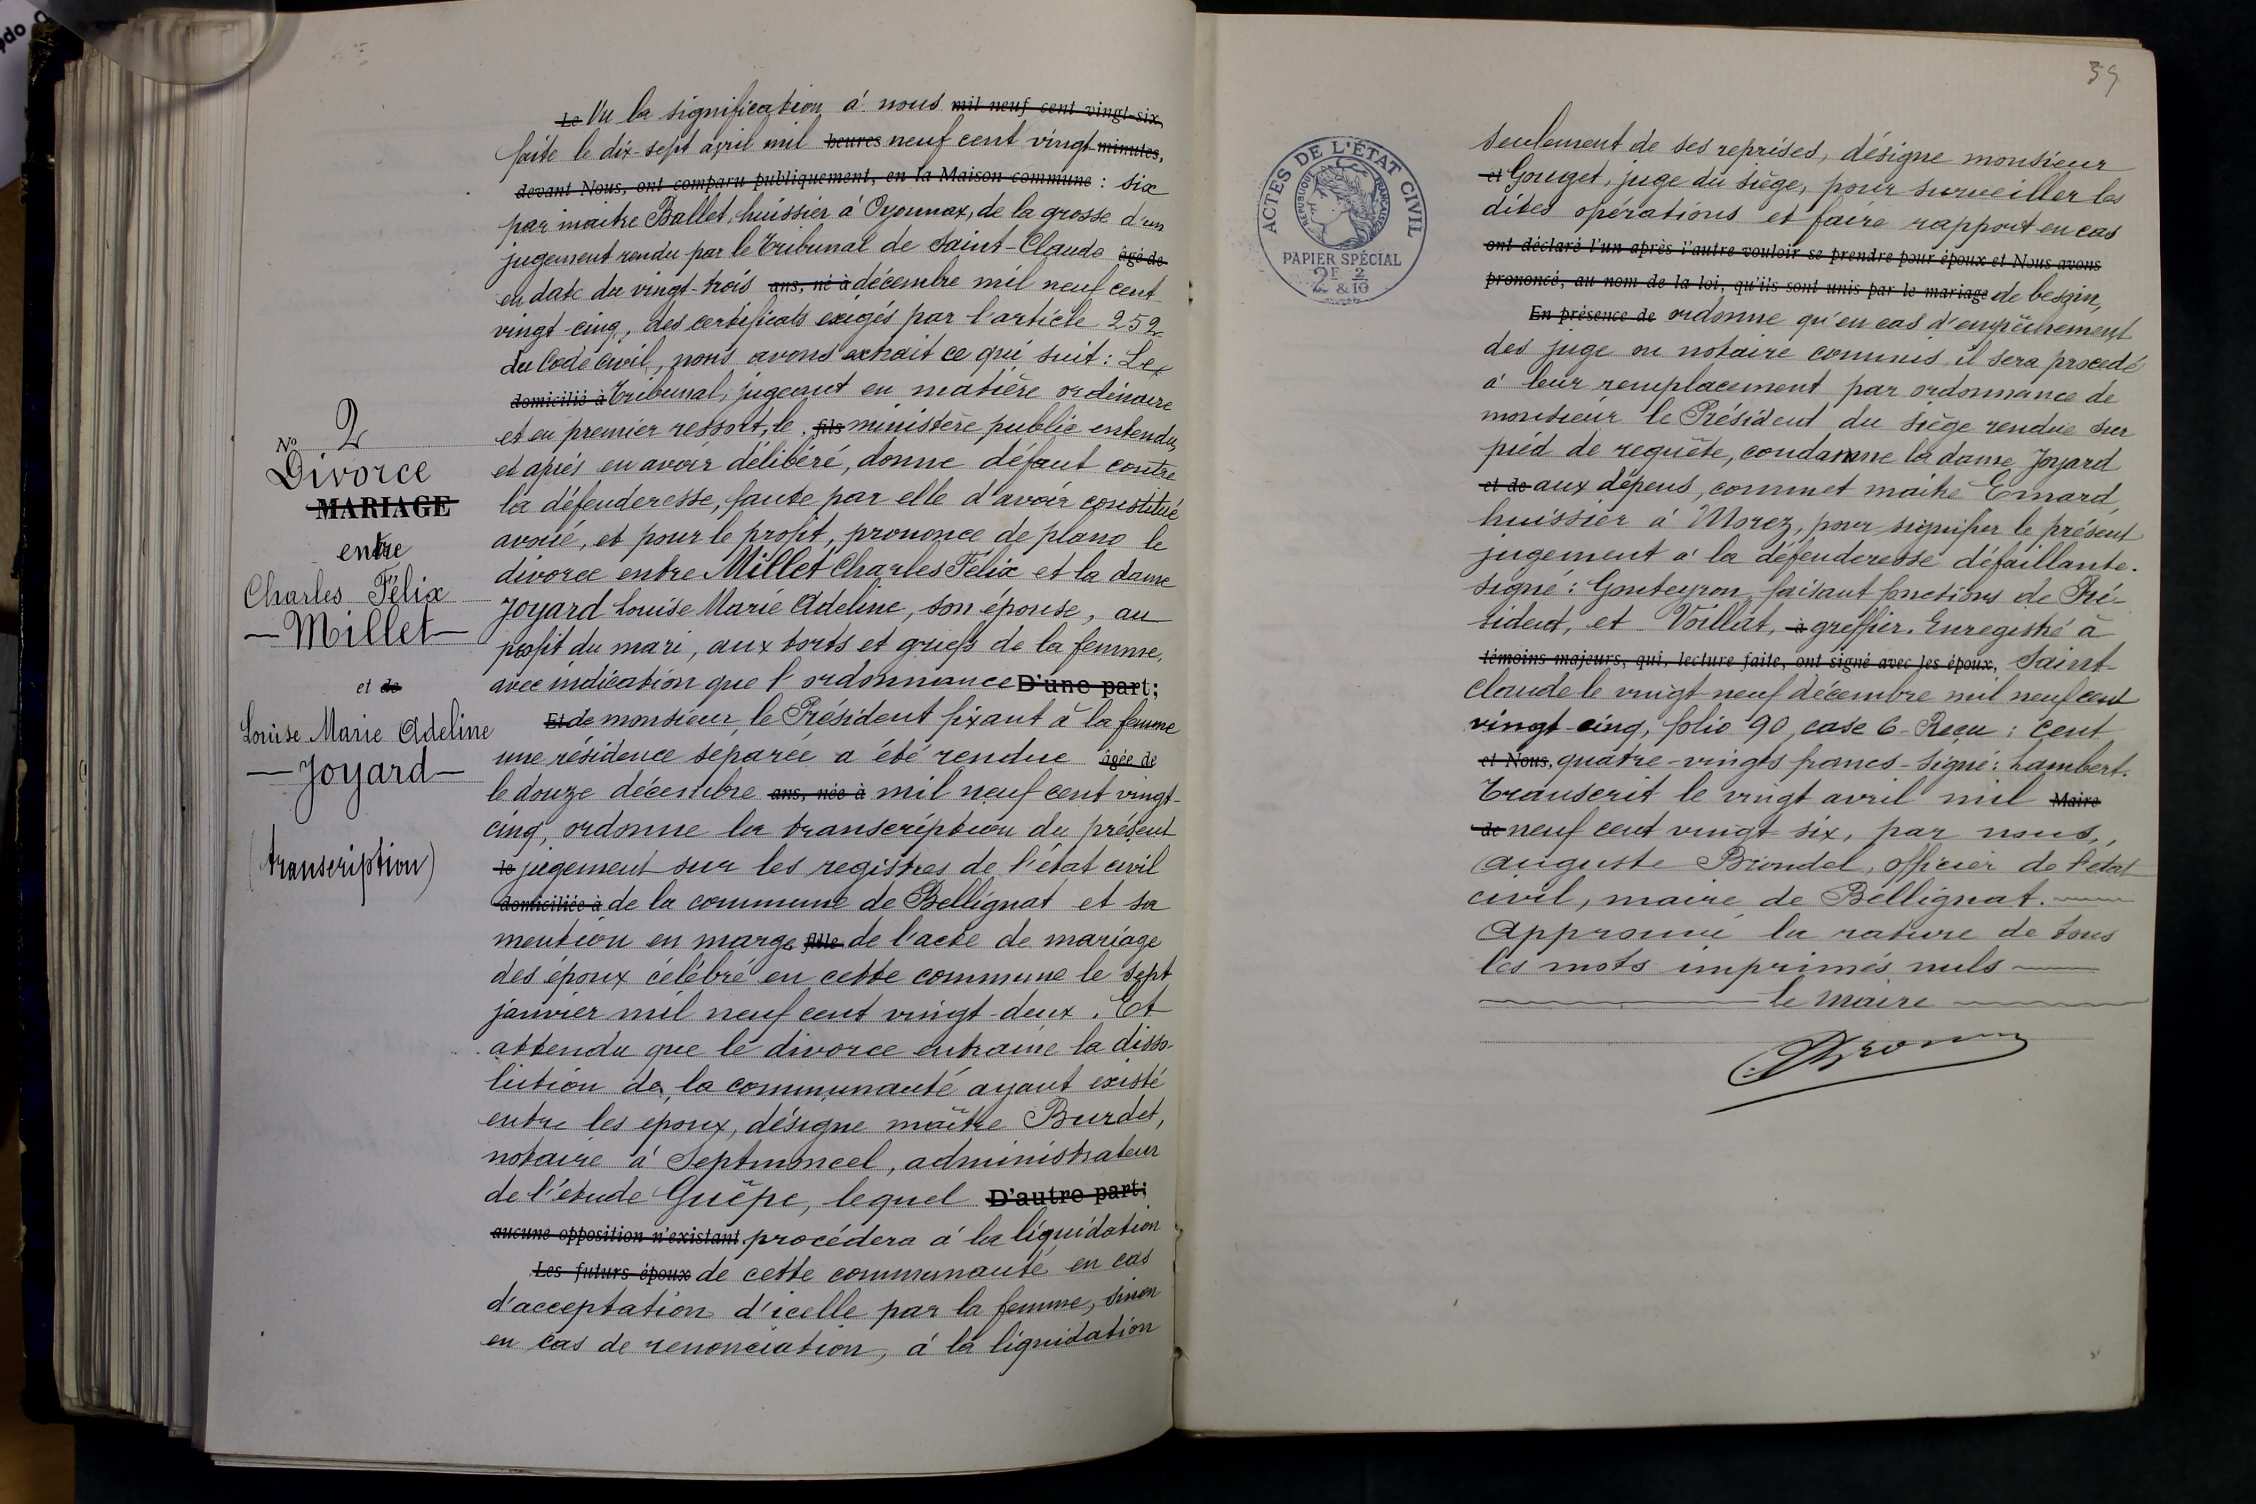 N° 2
Divorce
MARIAGE
entre
Charles Félix
— Millet —
et de
Louise Marie Adeline
— Joyard —
(transcription)
Le Vu la signification à nous mil neuf cent vingt-six,
faite le dix-sept avril mil heures neuf cent vingt minutes,
devant Nous, ont comparu publiquement, en la Maison commune : six
par maitre Ballet, huissier à Oyonnax, de la grosse d'un
jugement rendu par le Tribunal de Saint-Claude âgé de
en date du vingt-trois ans, né à décembre mil neuf cent
vingt-cinq, des certificats exigés par l'article 252
du Code civil, nous avons extrait ce qui suit : Le
domicilié à Tribunal, jugeant en matière ordinaire
et en premier ressort, le fils ministère public entendu,
et après en avoir délibéré, donne défaut contre
la défenderesse, faute par elle d'avoir constitué
avoué, et pour le profit, prononce de plano le
divorce entre Millet Charles Félix et la dame
Joyard Louise Marie Adeline, son épouse, au
profit du mari, aux torts et griefs de la femme,
avec indication que l'ordonnance D'une part;
Et de monsieur le Président fixant à la femme
une résidence séparée a été rendue âgée de
le douze décembre ans, née à mil neuf cent vingt-
cinq, ordonne la transcription du présent
le jugement sur les registres de l'état civil
domiciliée à de la commune de Bellignat et sa
mention en marge fille de l'acte de mariage
des époux célébré en cette commune le sept
janvier mil neuf cent vingt-deux. Et
attendu que le divorce entraine la disso-
lution de la communauté ayant existé
entre les époux, désigne maître Burdet,
notaire à Septmoncel, administrateur
de l'étude Guêpe, lequel D'autre part;
aucune opposition n'existant procédera à la liquidation
Les futurs époux de cette communauté en cas
d'acceptation d'icelle par la femme, sinon
en cas de renonciation, à la liquidation
39
ACTES DE L'ÉTAT CIVIL
RÉPUBLIQUE FRANÇAISE
PAPIER SPÉCIAL
2F & 2/10
seulement de ses reprises, désigne monsieur
et Gouget, juge du siège, pour surveiller les
dites opérations et faire rapport en cas
ont déclaré l'un après l'autre vouloir se prendre pour époux et Nous avons
prononcé, au nom de la loi, qu'ils sont unis par le mariage de besoin,
En présence de ordonne qu'en cas d'empêchement
des juge ou notaire commis, il sera procédé
à leur remplacement par ordonnance de
monsieur le Président du siège rendue sur
pied de requête, condamne la dame Joyard
et de aux dépens, commet maitre Emard,
huissier à Morez, pour signifier le présent
jugement à la défenderesse défaillante.
signé : Gouteyron, faisant fonctions de Pré-
sident, et Voillat, à greffier. Enregistré à
témoins majeurs, qui, lecture faite, ont signé avec les époux, Saint-
Claude le vingt-neuf décembre mil neuf cent
vingt-cinq, folio 90, case 6. Reçu : Cent
et Nous, quatre-vingts francs - signé : Lambert.
Transcrit le vingt avril mil Maire
de neuf cent vingt-six, par nous,
Auguste Blondel, officier de l'état
civil, maire de Bellignat.
Approuvé la rature de tous
les mots imprimés nuls
le Maire